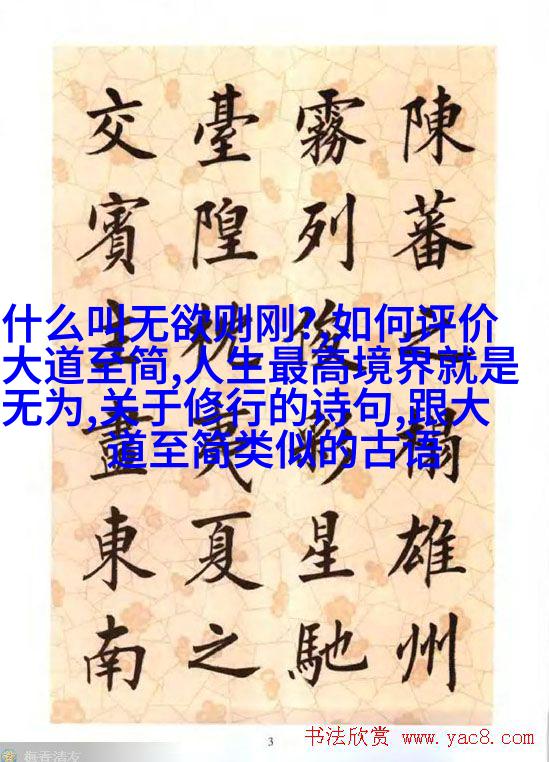 陳蕃之榻雄州
霧列俊彩星馳
臺隍枕夷夏之
交賓主盡東南
什么叫无欲则刚? 如何评价
大道至简,人生最高境界就是
无为,关于修行的诗句,跟大
道至简类似的古语
3
书法欣赏 www.yac8.com